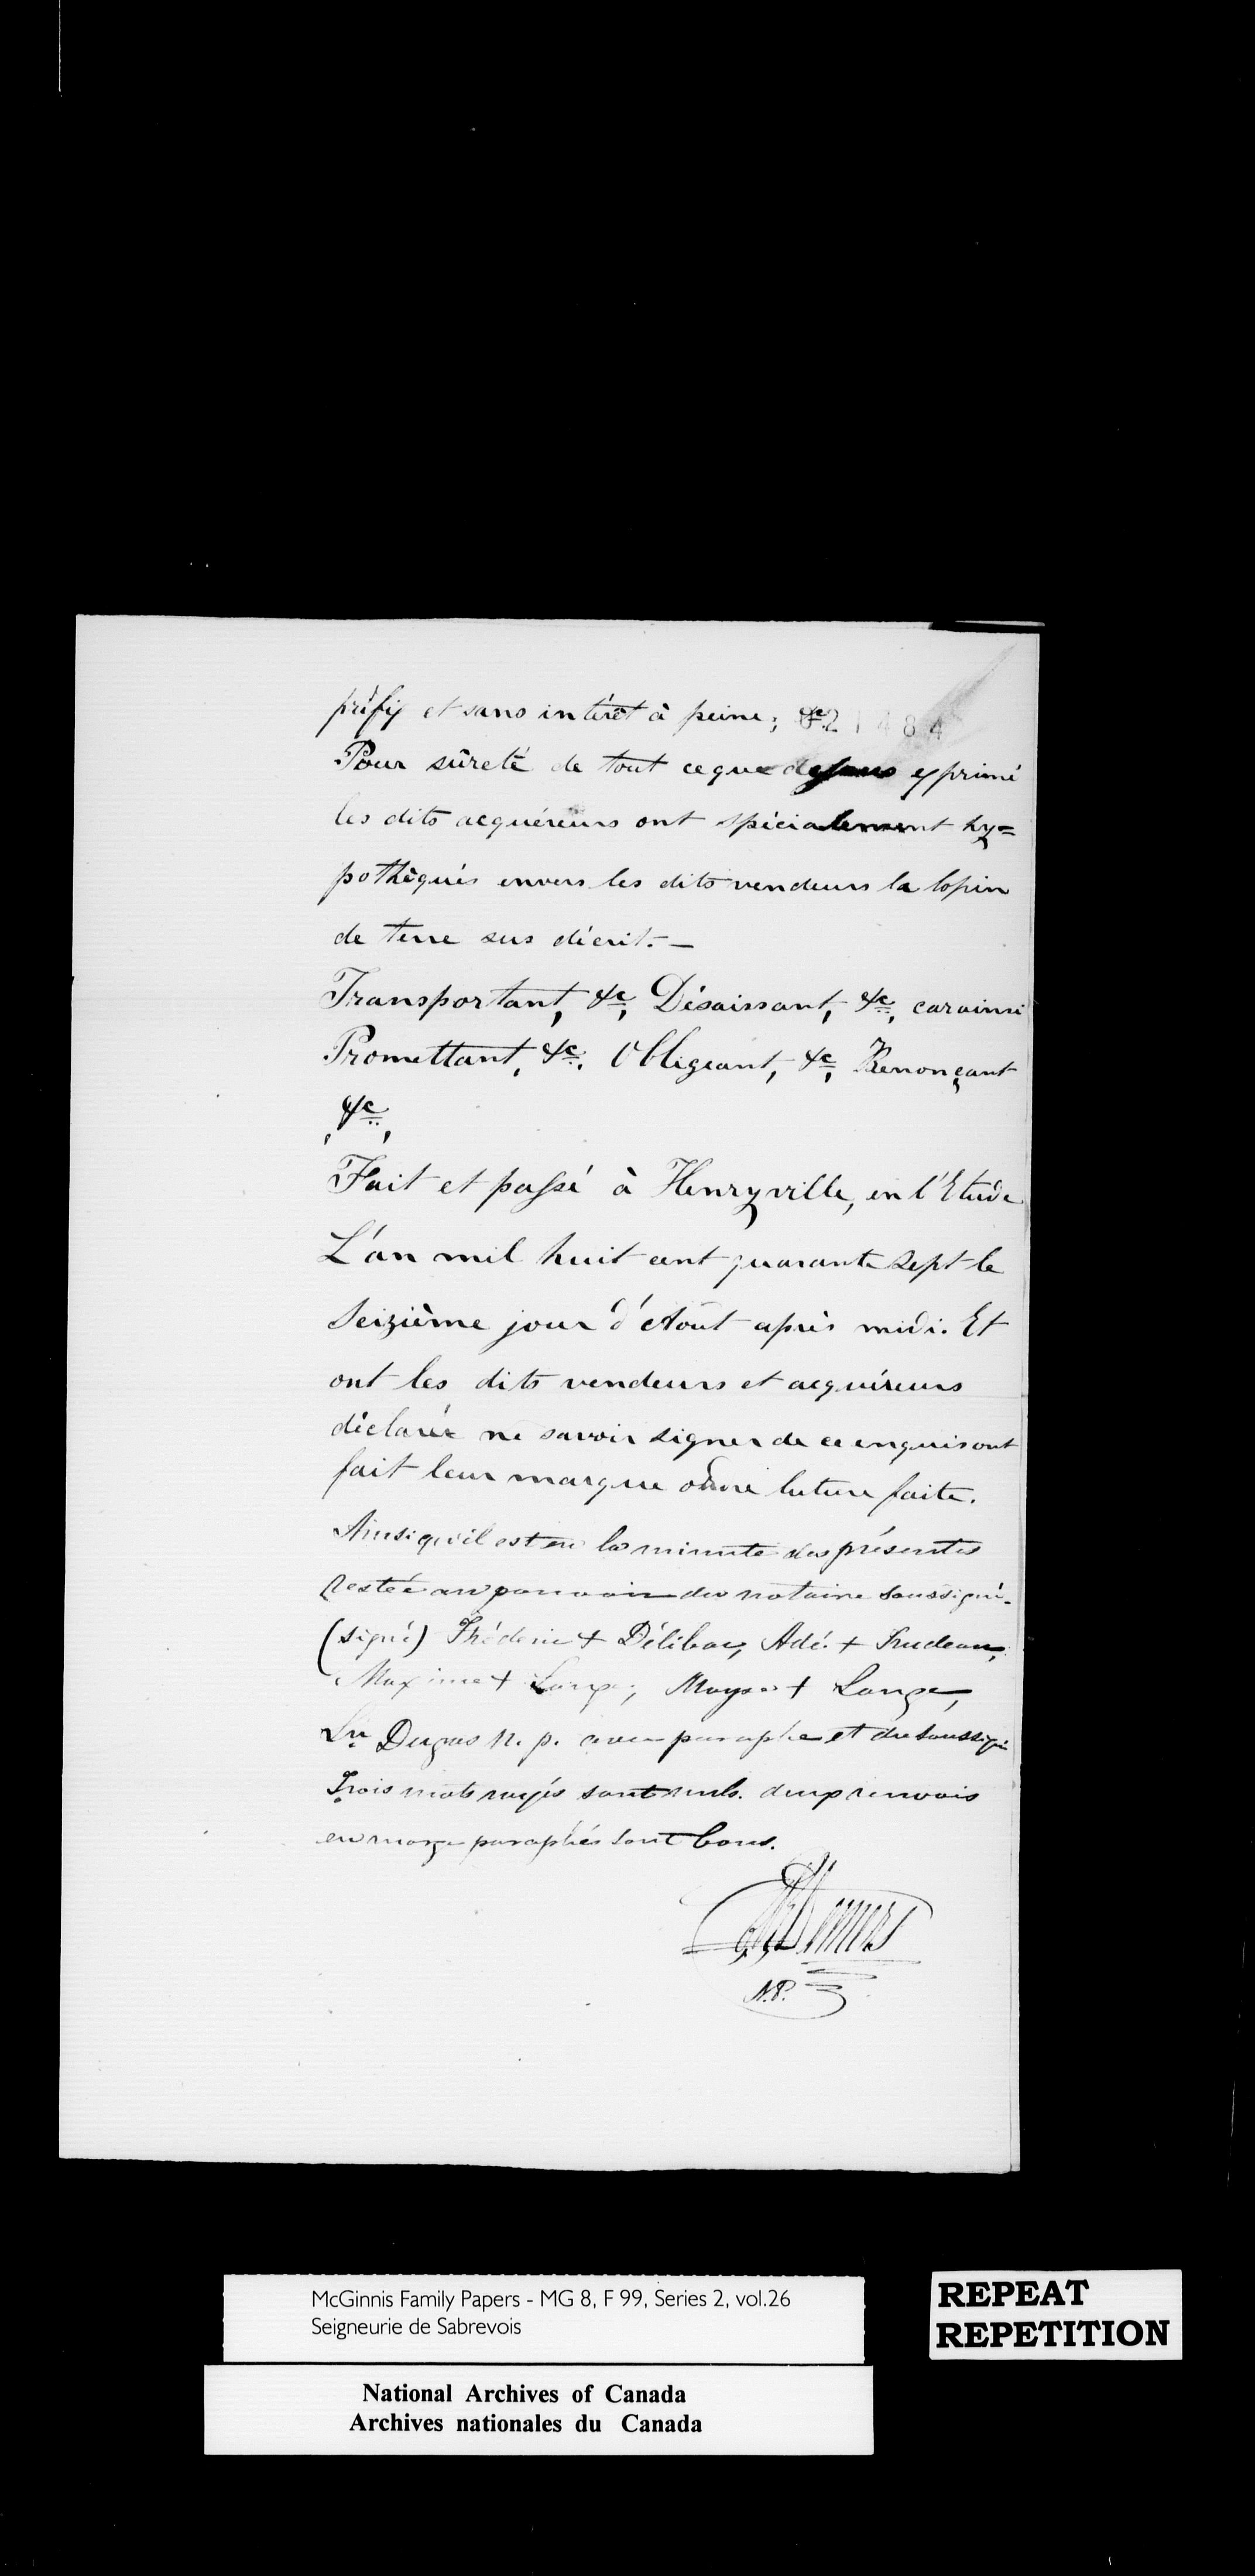 préfix et sans intérêt à peine; &c. 21484
Pour sûreté de tout ce que dessus exprimé
les dits acquéreurs ont spécialement hy=
pothèqués envers les dits vendeurs la lopin
de terre sus décrit.—
Transportant, &c, Désaississant, &c, car ainsi
Promettant, &c. Obligeant, &c, Renonçant
&c,
Fait et passé à Henryville, en l'Etude
L'an mil huit cent quarante sept le
Seizième jour d'Aout après midi. Et
ont les dits vendeurs et acquéreurs
déclaré ne savoir signer de ce enquis ont
fait leur marque ordre lecture faite.
Ainsi qu'il est en la minute des présentes
restée au pouvoir du notaire soussigné.
(signé) Fréderic + Délibac, Adé. + Trudeau,
Maxime + Lange, Moyse + Lange,
Ln Dugas N. p. avec paraphe et du soussigné
Trois mots rayés sont nuls. deux renvois
en marge paraphés sont bons.
Demers
N.P.
McGinnis Family Papers - MG 8, F 99, Series 2, vol.26
Seigneurie de Sabrevois
REPEAT
REPETITION
National Archives of Canada
Archives nationales du Canada